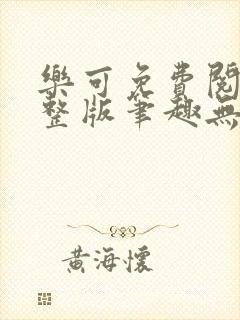 樂可免費閱
整版筆趣無
黃海懷